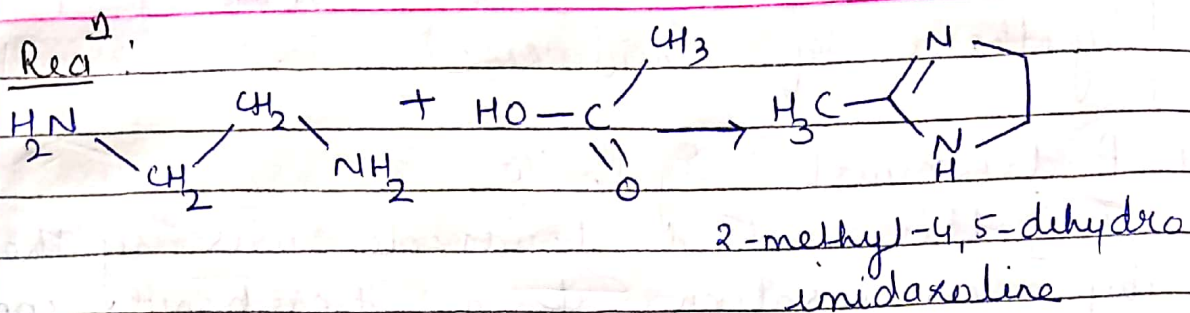 Reaⁿ :
H₂N CH₂ CH₂ NH₂ + HO — C CH₃ O → H₃C N N H
2-methyl-4,5-dihydro
imidazoline